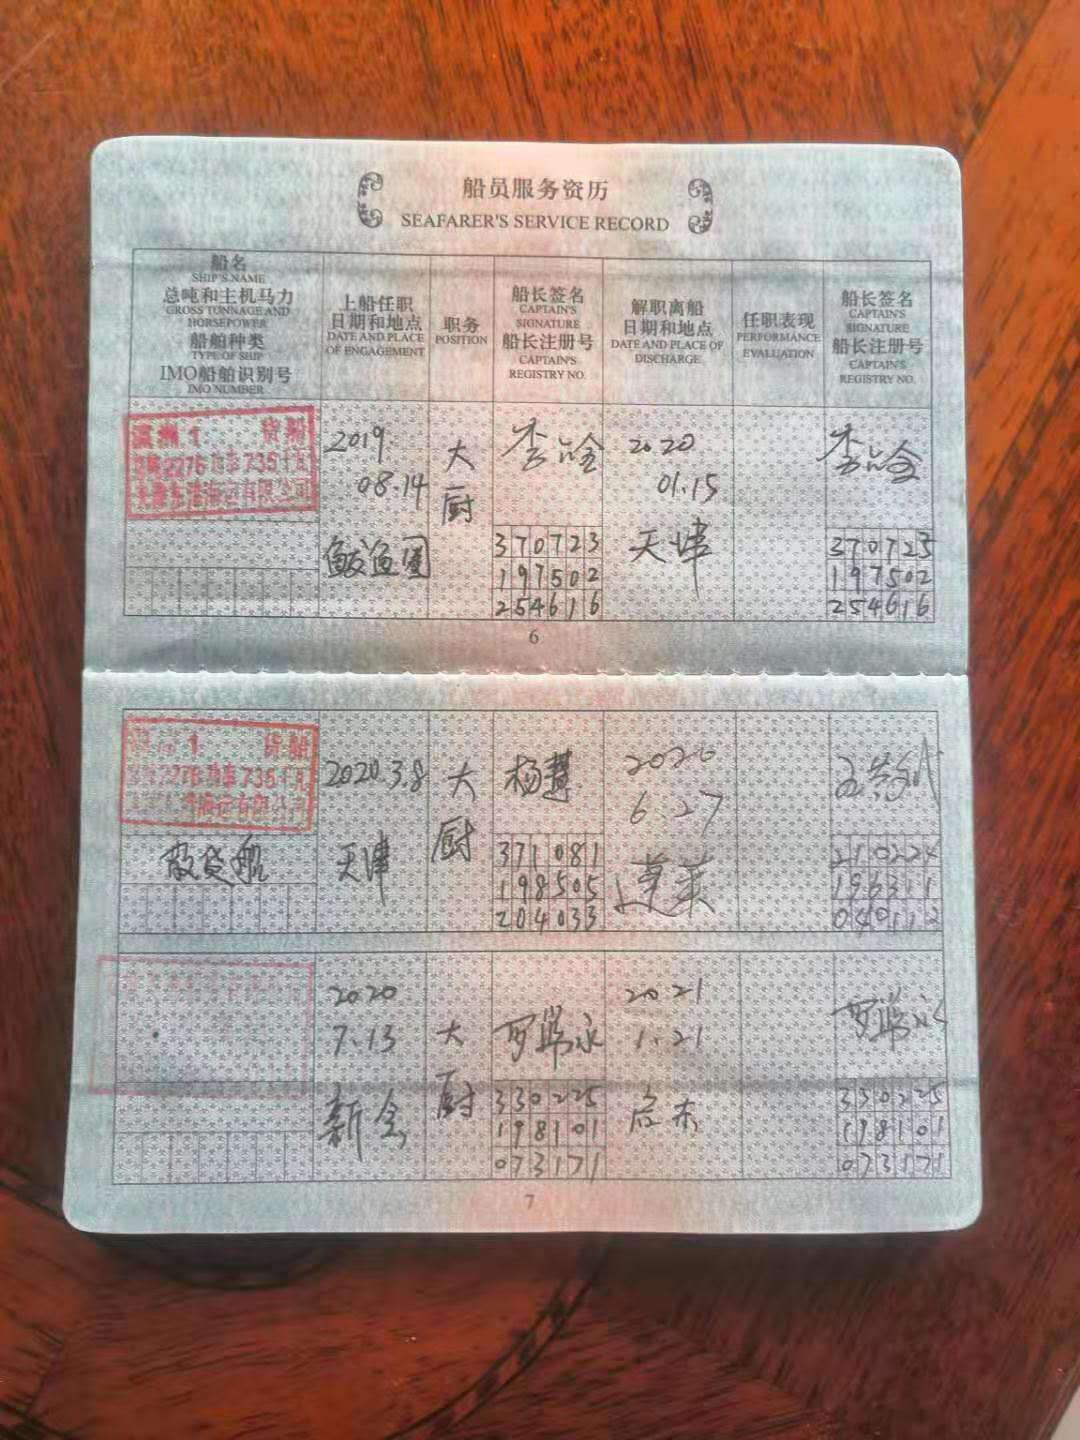 船员服务资历
SEAFARER'S SERVICE RECORD
船名
SHIP'S NAME
总吨和主机马力
GROSS TONNAGE AND
HORSEPOWER
船舶种类
TYPE OF SHIP
IMO船舶识别号
IMO NUMBER
上船任职
日期和地点
DATE AND PLACE
OF ENGAGEMENT
职务
POSITION
船长签名
CAPTAIN'S
SIGNATURE
船长注册号
CAPTAIN'S
REGISTRY NO.
解职离船
日期和地点
DATE AND PLACE OF
DISCHARGE
任职表现
PERFORMANCE
EVALUATION
船长签名
CAPTAIN'S
SIGNATURE
船长注册号
CAPTAIN'S
REGISTRY NO.
1 货船
2276 功率735千瓦
海运有限公司
2019.
08.14
鲅鱼圈
大
厨
370723
197502
254616
2020
01.15
天津
370723
197502
254616
6
1 货船
2276 功率735千瓦
海运有限公司
散货船
2020.3.8
天津
大
厨
371081
198505
204033
2020
6.27
蓬莱
210224
196311
040112
2020
7.13
新会
大
厨
330225
198101
073171
2021
1.21
330225
198101
073171
7